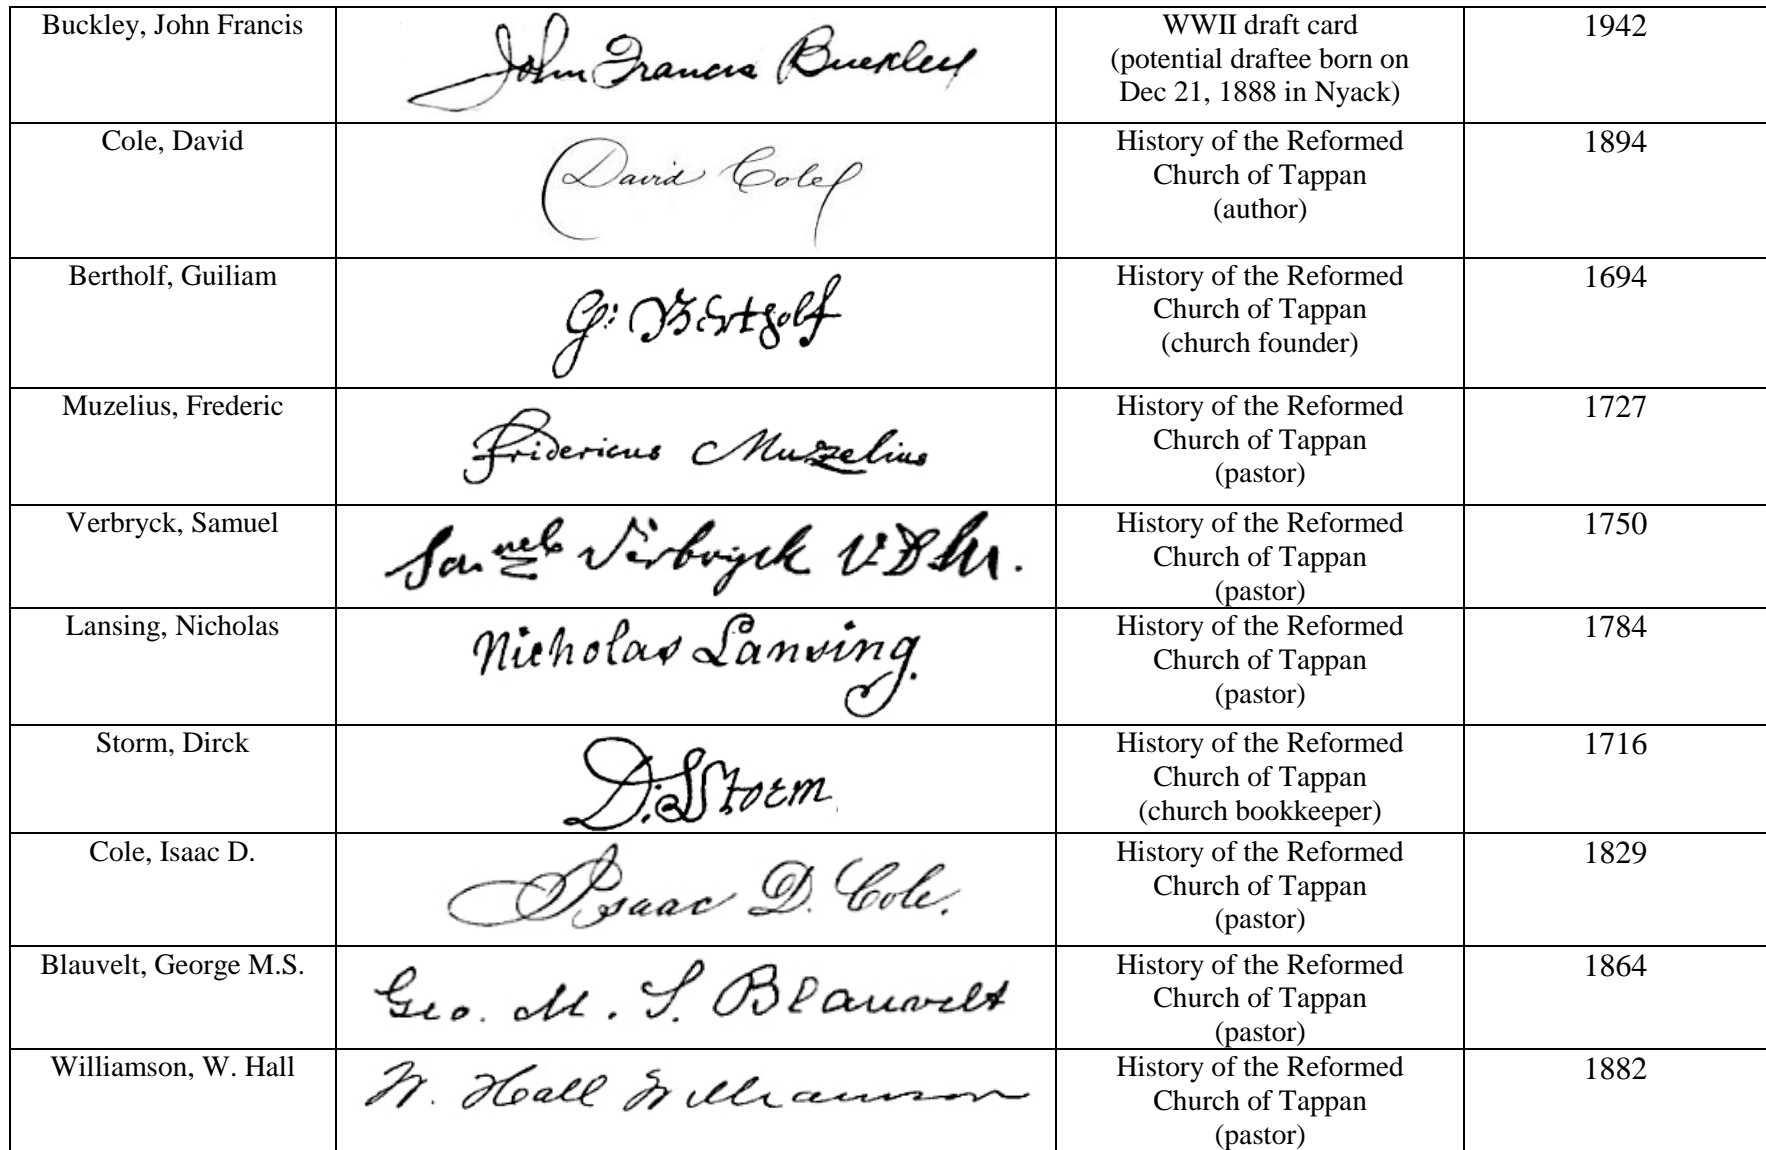 Buckley, John Francis
John Francis Buckley
WWII draft card
(potential draftee born on
Dec 21, 1888 in Nyack)
1942
Cole, David
David Cole
History of the Reformed
Church of Tappan
(author)
1894
Bertholf, Guiliam
G: Bertholf
History of the Reformed
Church of Tappan
(church founder)
1694
Muzelius, Frederic
Fridericus Muzzelius
History of the Reformed
Church of Tappan
(pastor)
1727
Verbryck, Samuel
Samuel Verbryck V.D.M.
History of the Reformed
Church of Tappan
(pastor)
1750
Lansing, Nicholas
Nicholas Lansing.
History of the Reformed
Church of Tappan
(pastor)
1784
Storm, Dirck
D: Storm
History of the Reformed
Church of Tappan
(church bookkeeper)
1716
Cole, Isaac D.
Isaac D. Cole.
History of the Reformed
Church of Tappan
(pastor)
1829
Blauvelt, George M.S.
Geo. M. S. Blauvelt
History of the Reformed
Church of Tappan
(pastor)
1864
Williamson, W. Hall
W. Hall Williamson
History of the Reformed
Church of Tappan
(pastor)
1882